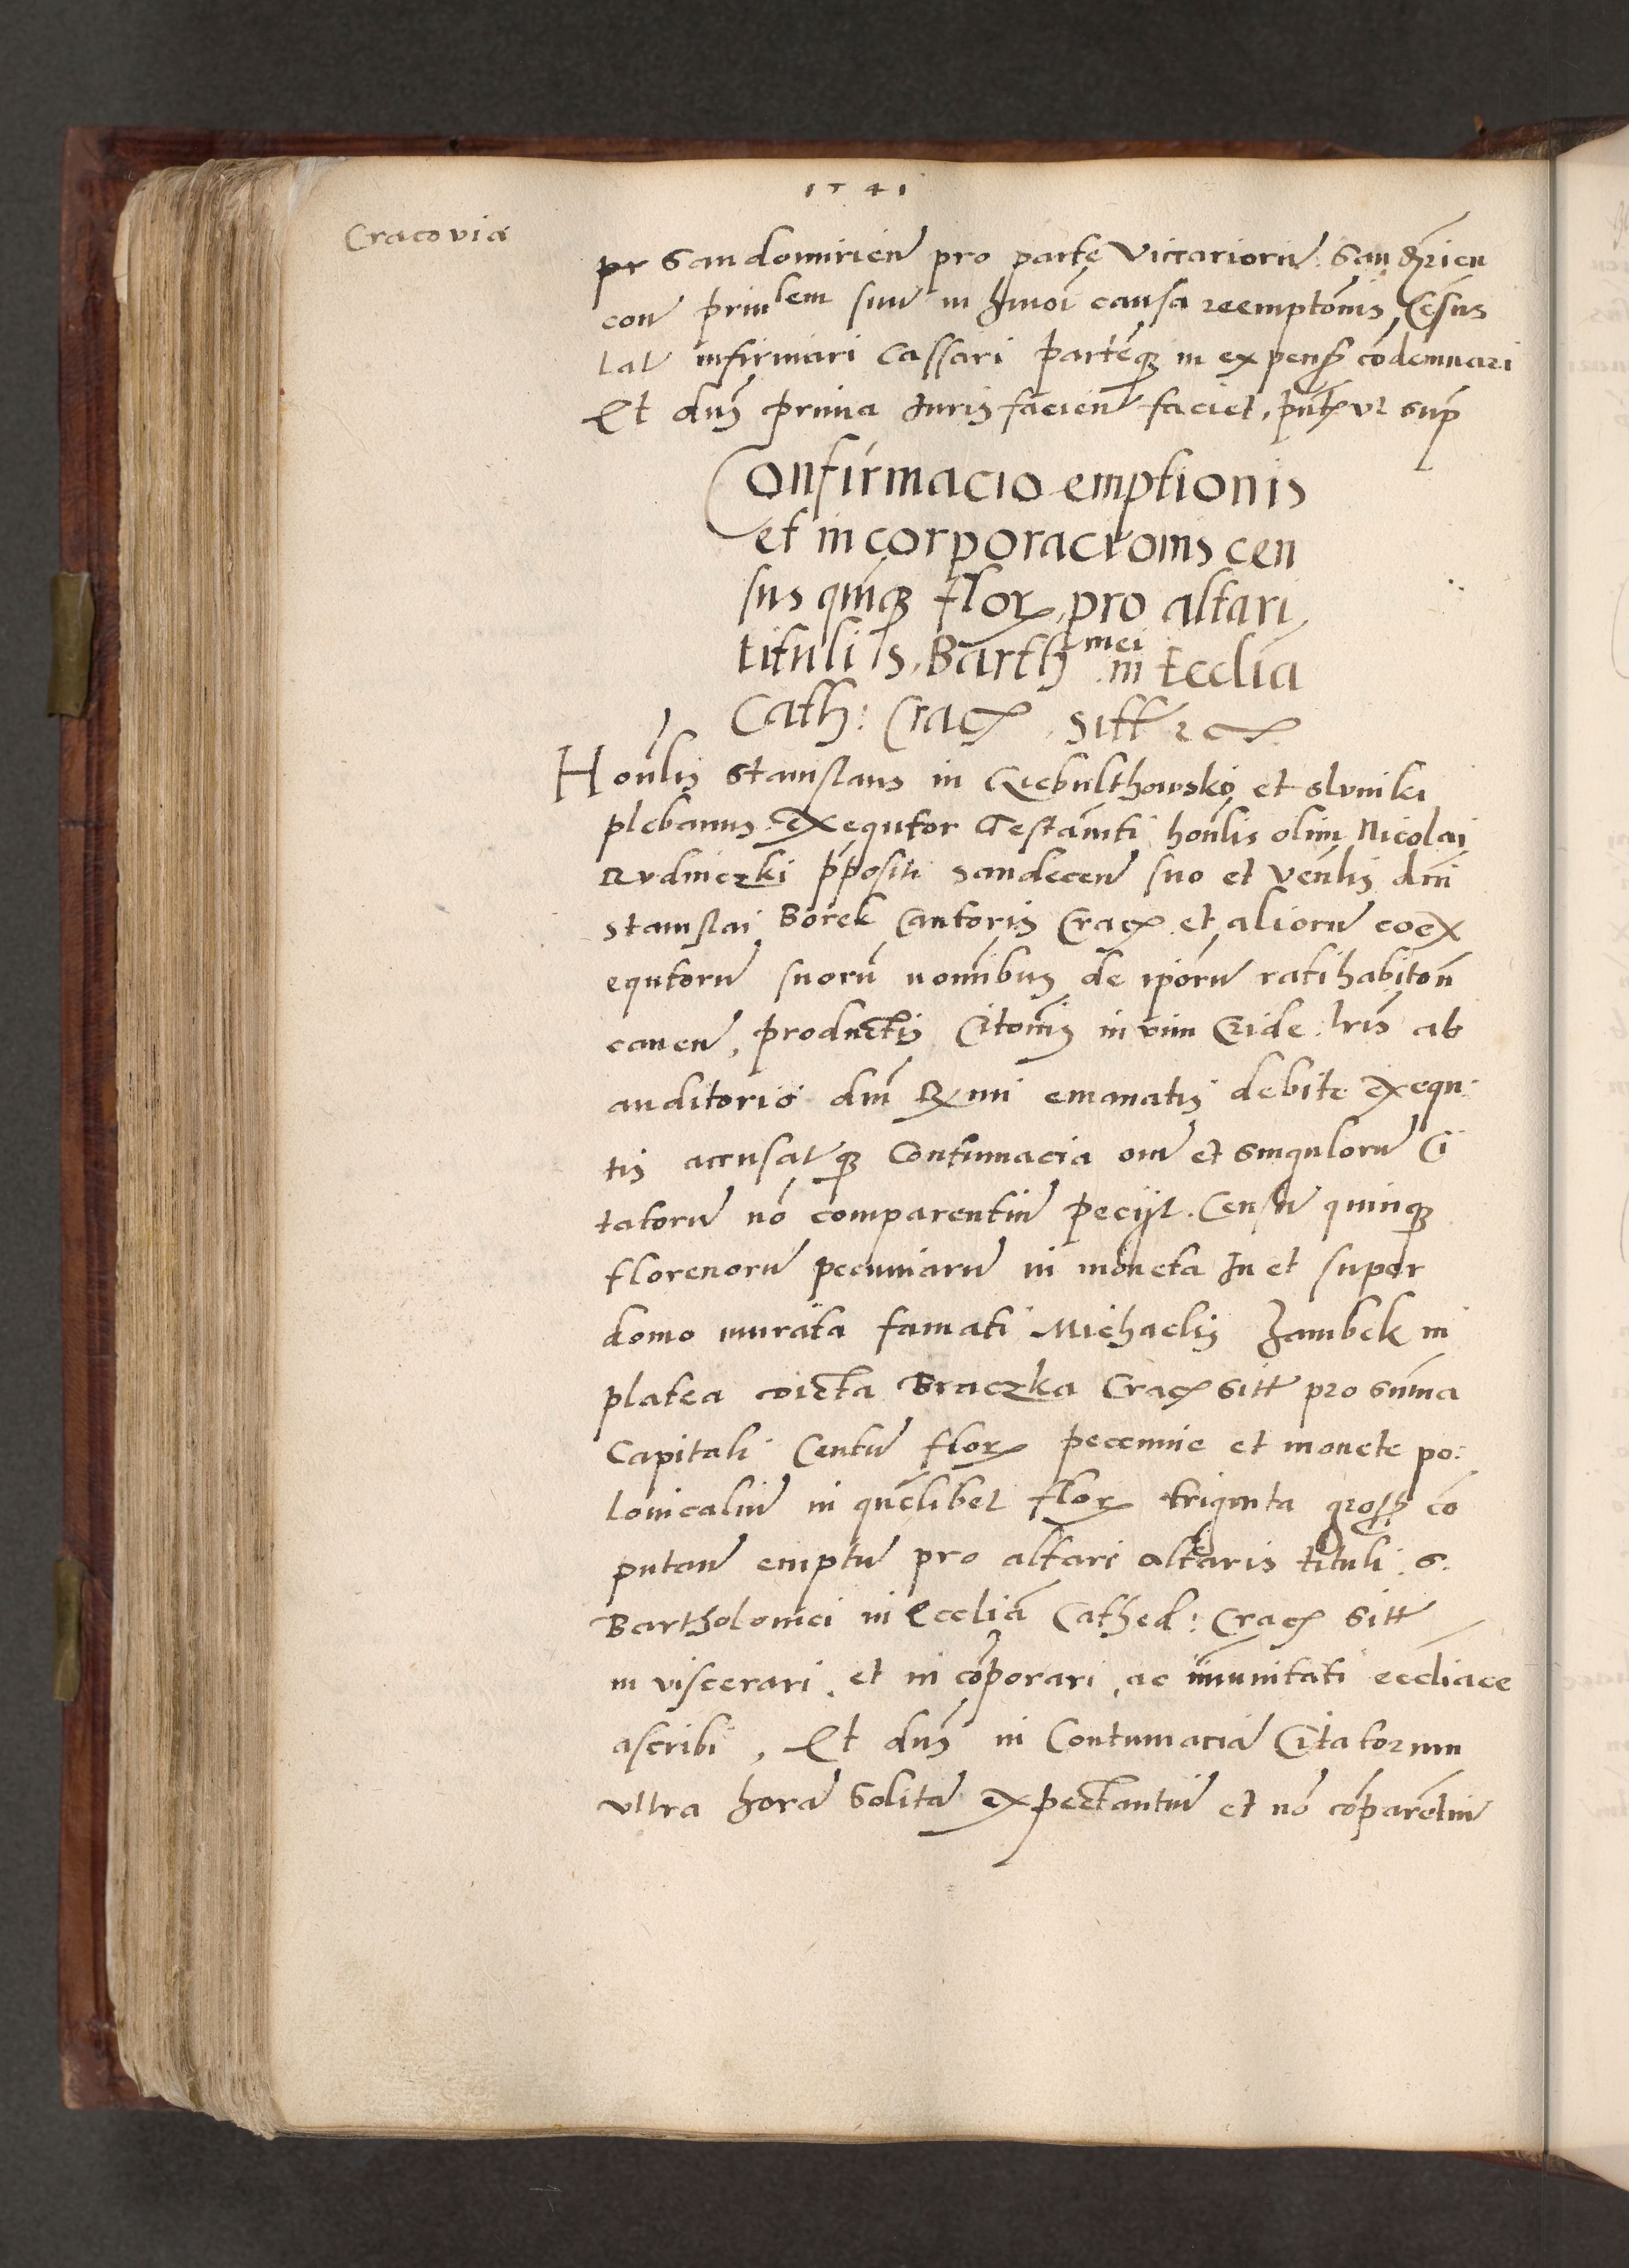 1541
Cracovia
pr Sandomirien̄ pro parte Viccariorū Sandm̄rien
con prin lem suū in hmōi causa reemptōnis, Cēsus
lat infirmari cassari partēq; in expens̄ cōdemnari
Et dn̄s prima Juris facien̄ faciet, pn̄t vt sup̄
Confirmacio emptionis
et incorporacionis cen
sus quīq; flor, pro altari
tituli S. Barthmei in Eccliā
Cath: Crac, sitt
Honl̄is Stanislaus in Czebulthowsky et Slvniki
plebanus Exequtor Testām̄ti honl̄is olim Nicolai
Rvdniczki p̄positi Sandecen̄ suo et Venl̄is dn̄i
Stanislai Borek Cantoris Crac et aliorū coex
equtorū suorū nomībus de ip̄orū ratihabitōn̄
caven̄, productis Citōnis in vim Cride lr̄is ab
auditorio dn̄i Rmi emanatis debite exequ
tis accusatq; Contumacia oīm et singulorū Ci
tatorū nō comparentiū peciit Censū quinq;
florenorū pecuniarū in moneta In et super
domo murata famati Michaelis Zambek in
platea dicta Braczka Crac sitt pro sūma
Capitali Centū flor pecunie et monete po:
lonicaliū in quēlibet flor triginta gross̄ cō
putan̄ emptū pro altari altaris tituli S.
Bartholomei in Eccliā Cathed: Crac sitt
inviscerari et in cōrporari, ac īmunitati eccliāce
ascribi, Et dn̄s in Contumaciā Citatorum
vltra horā Solitā expectantiū et nō cōparētiū